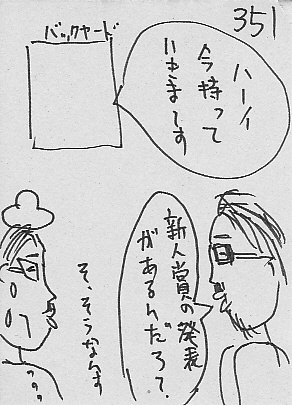 351
バックヤード
ハーイ
今持って
いきまーす
新人賞の発表
があるんだろ？
そ、そうなんす